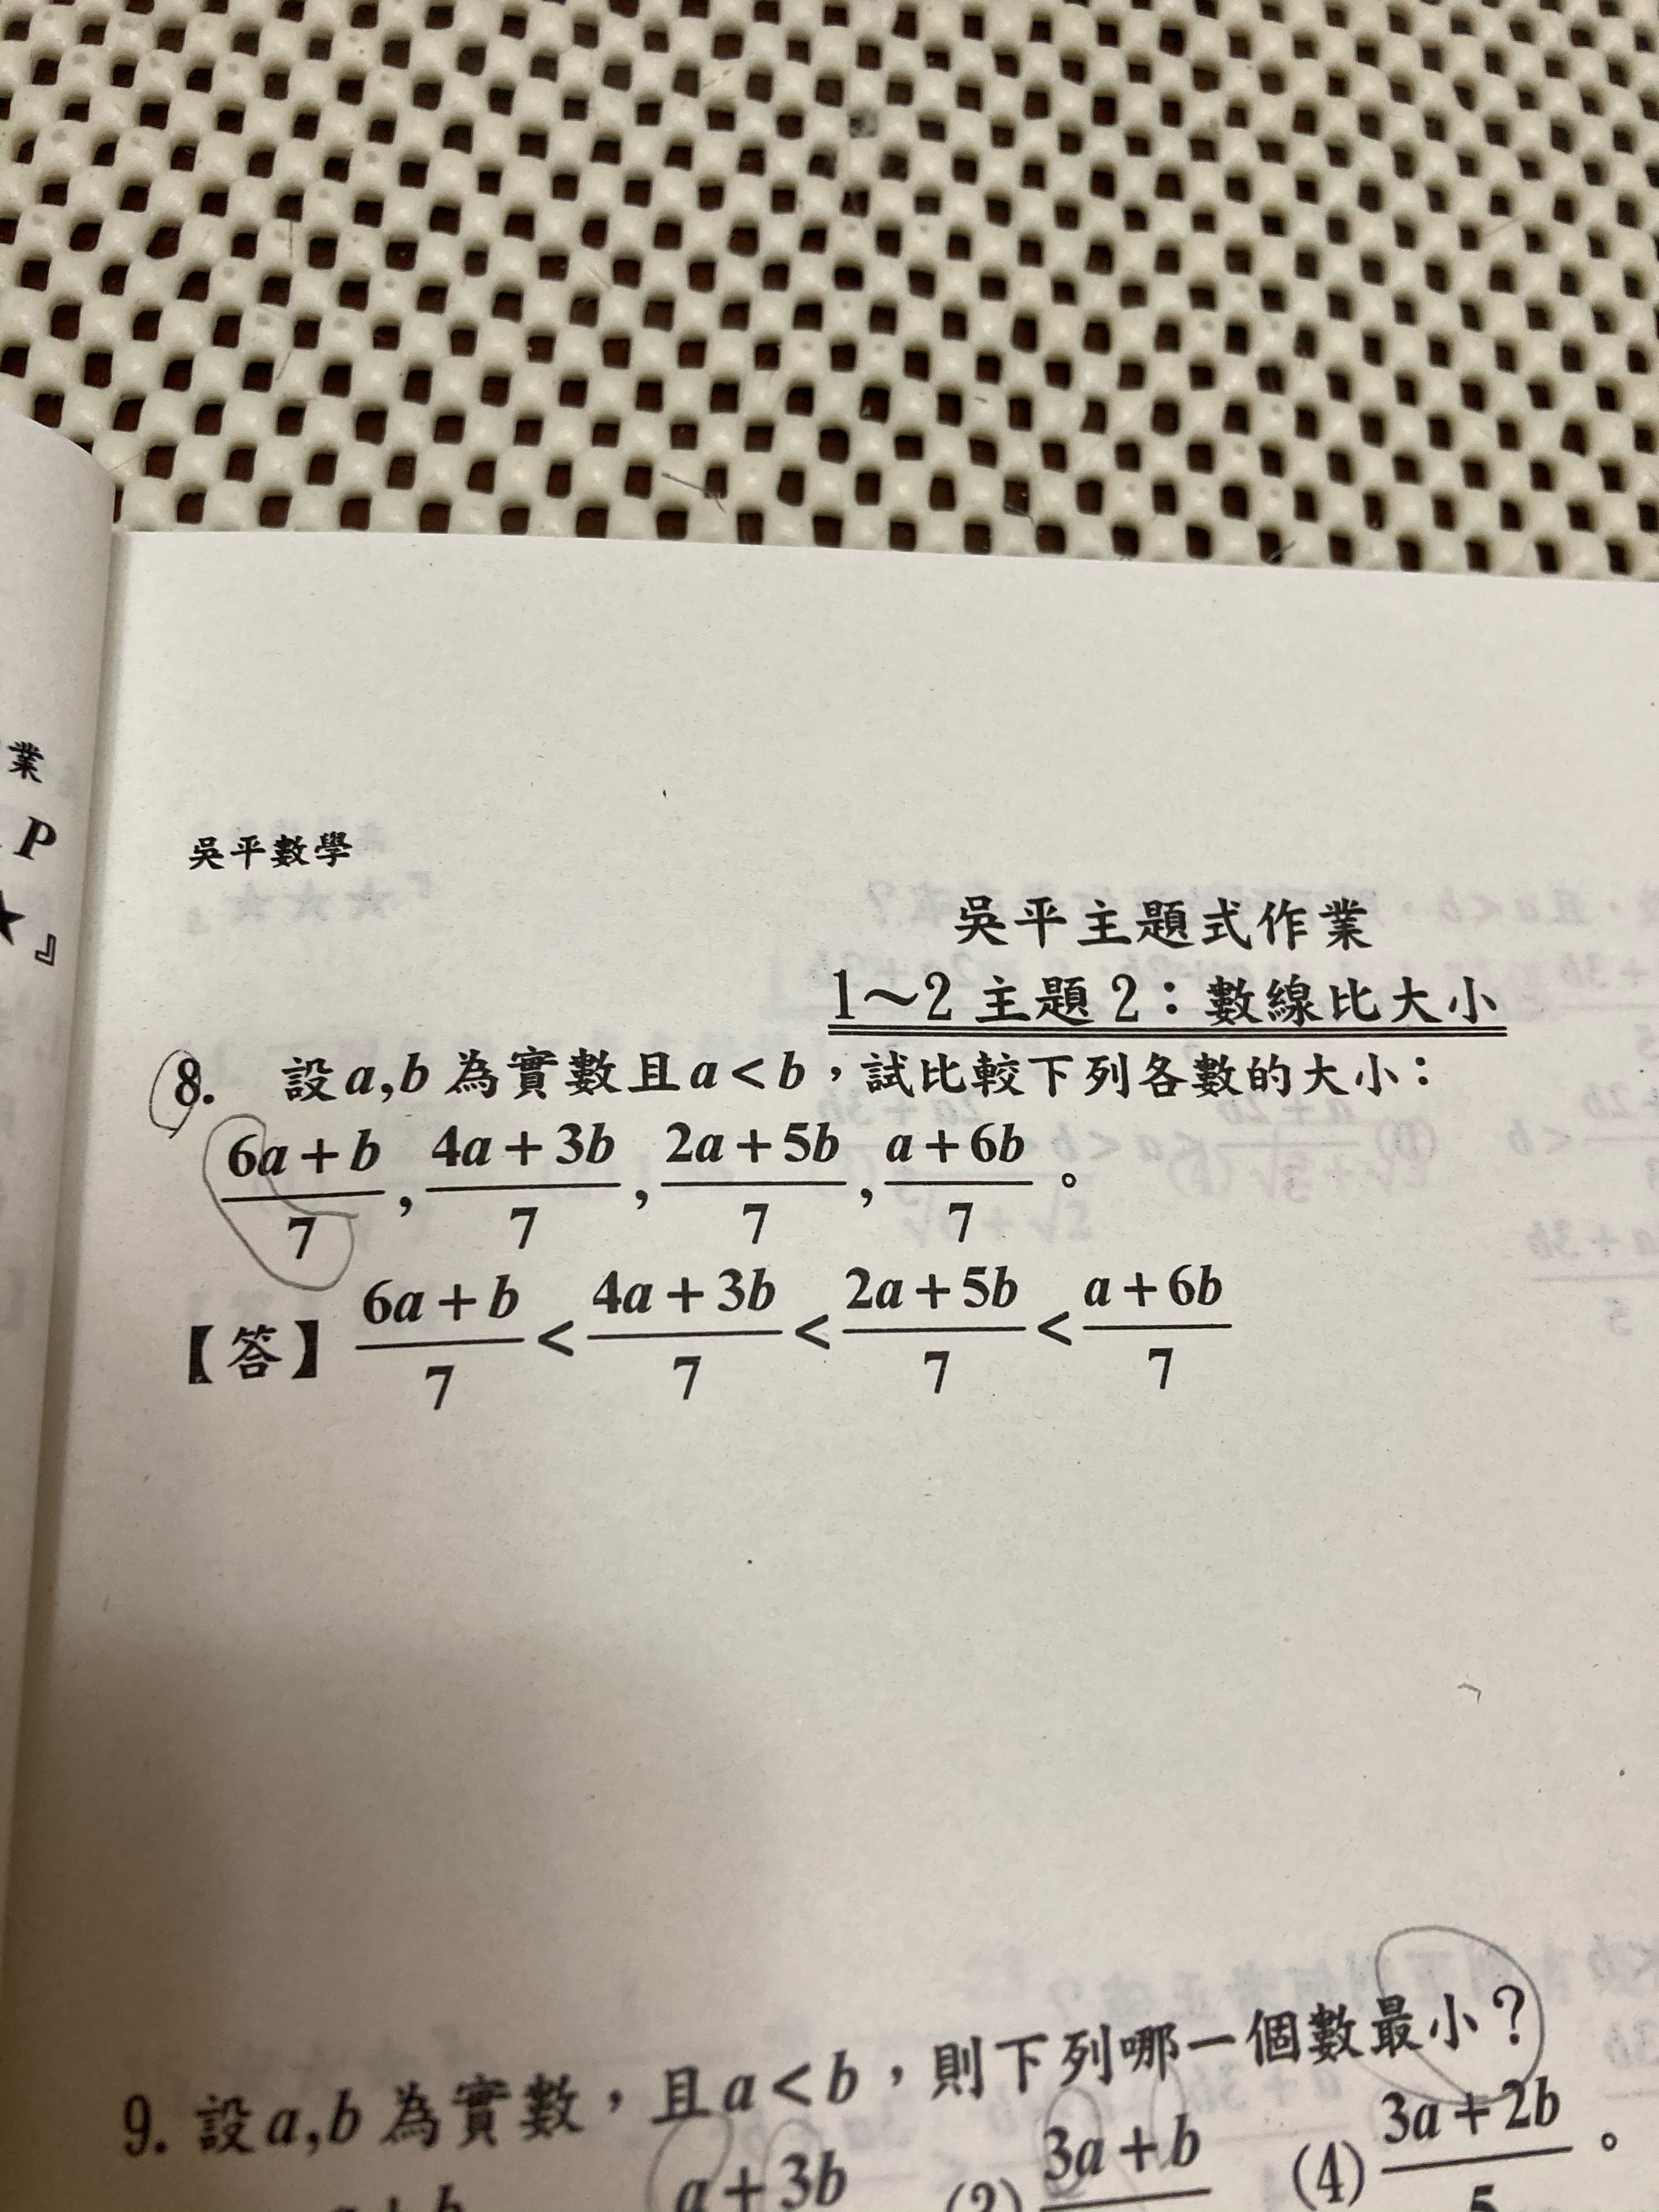 業
P
★』
吳平數學
吳平主題式作業
1～2 主題 2：數線比大小
8. 設 a,b 為實數且 a < b，試比較下列各數的大小：
(6a + b)/7 , (4a + 3b)/7 , (2a + 5b)/7 , (a + 6b)/7 。
【答】 (6a + b)/7 < (4a + 3b)/7 < (2a + 5b)/7 < (a + 6b)/7
9. 設 a,b 為實數，且 a < b，則下列哪一個數最小？
a + b a + 3b 3a + b (4) (3a + 2b)/5 。